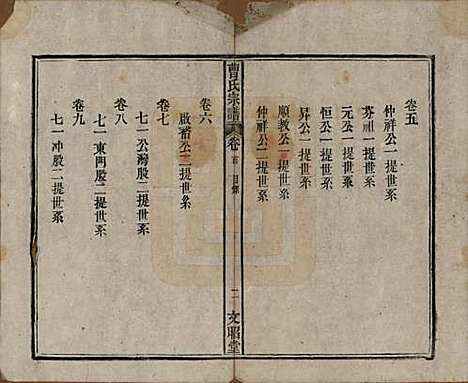 卷五
仲祥公一提世系
芬祖一提世系
元公一提世系
恒公一提世系
昇公一提世系
順教公一提世系
仲祥公二提世系
曹氏宗譜
卷首
目錄
二
文昭堂
卷六
啟公二提世系
卷七
七一公灣股二提世系
卷八
七一東門股二提世系
卷九
七一冲股二提世系